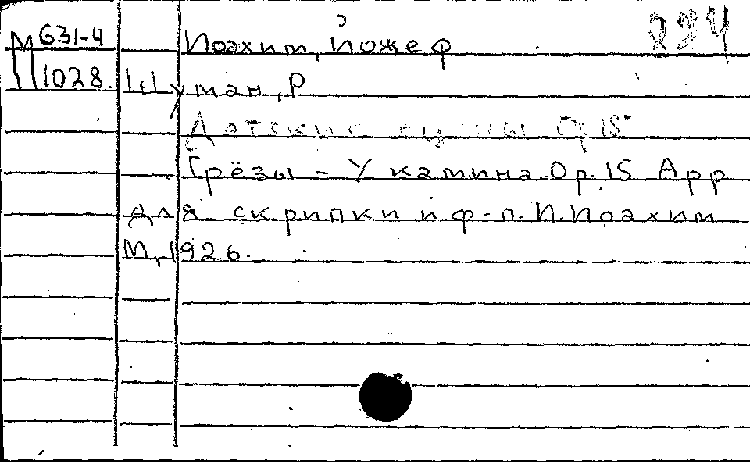 М 631-4 Иоахим, Йожеф 234
Ш 1028 Шуман, Р
Детские сцены Op. 15
Грёзы - У камина Op. 15 Арр
для скрипки и ф-п. И. Иоахим
М, 1926.